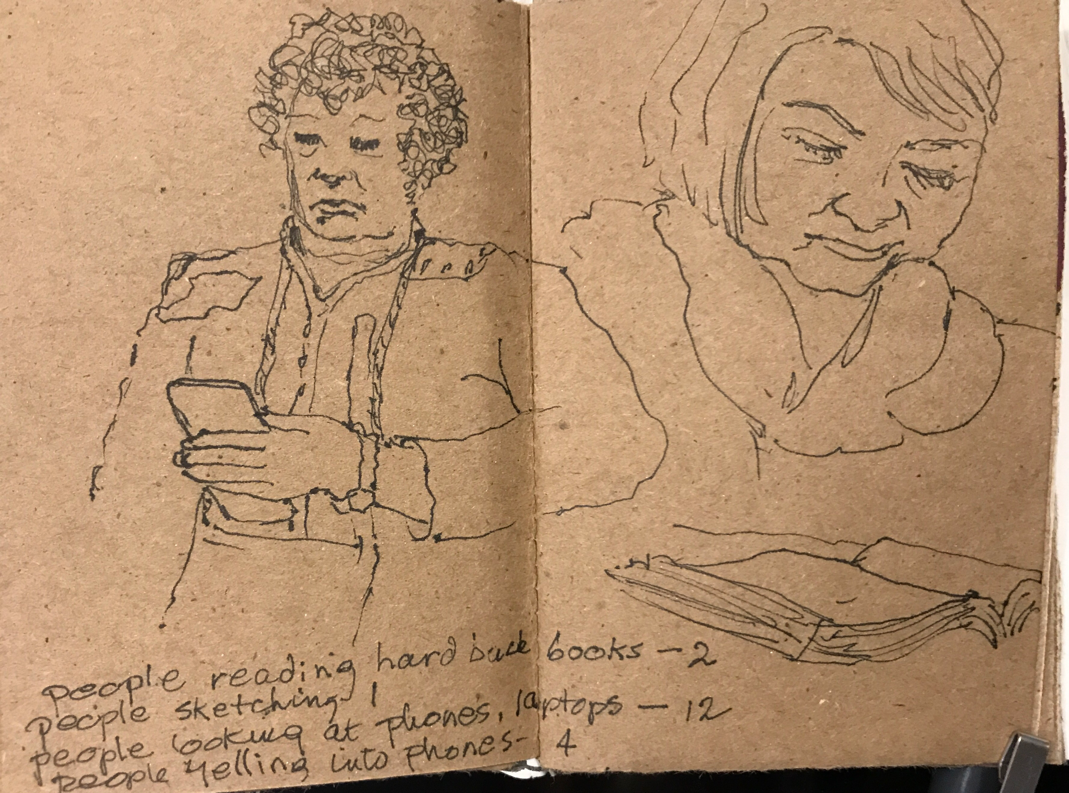 people reading hard back books - 2
people sketching - 1
people looking at phones, laptops - 12
people yelling into phones - 4